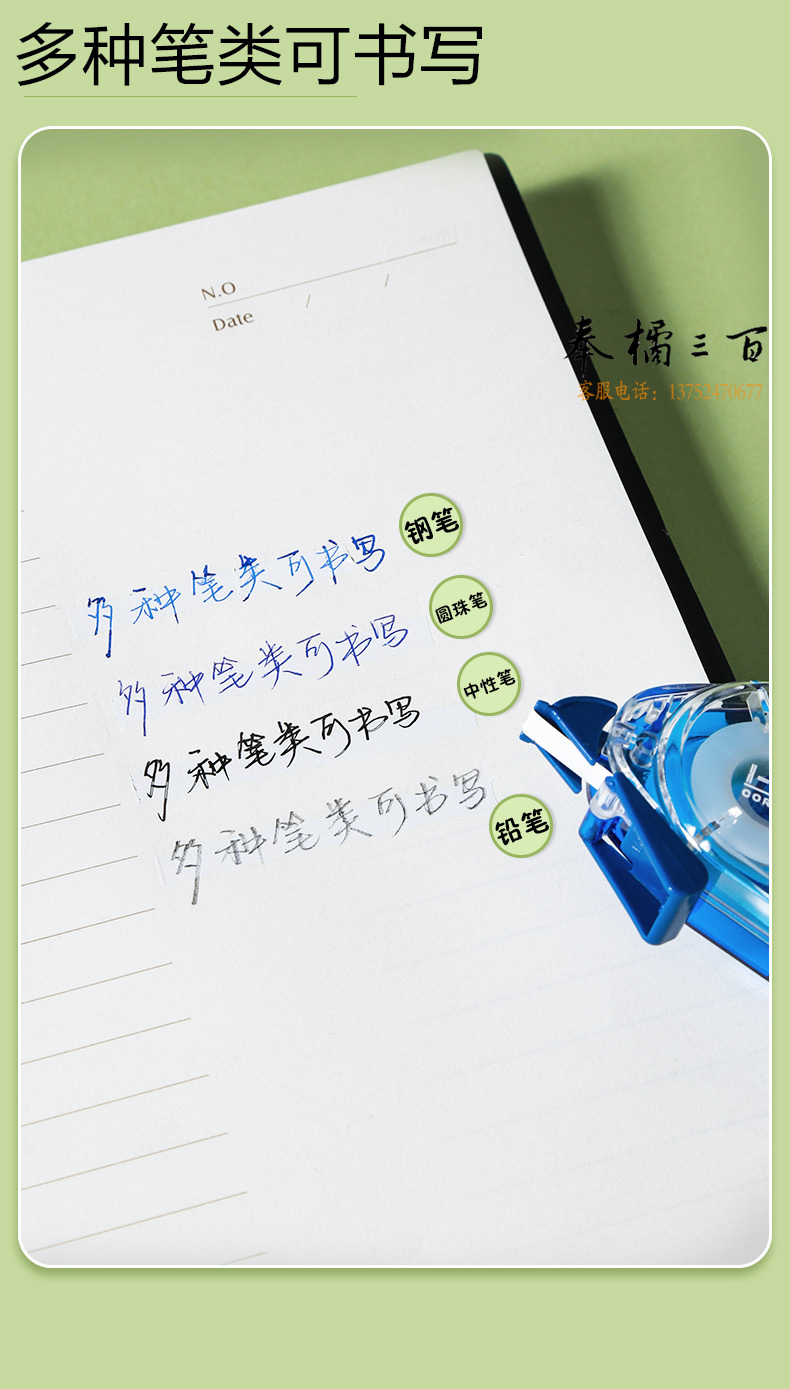 多种笔类可书写
N.O
Date / /
奉橘三百
客服电话：13752470677
多种笔类可书写
钢笔
多种笔类可书写
圆珠笔
多种笔类可书写
中性笔
多种笔类可书写
铅笔
COR